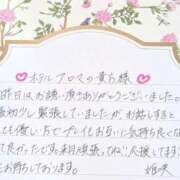 ♡ホテルアロマの貴方様♡
昨日はお誘い頂きありがとうございました。
最初少し緊張していましたが、お話しすると
とても優しい方でプレイもお互いに気持ち良くなれて
良かったです来月頑張ってね♡応援してます♡
お待ちしております。
姫咲